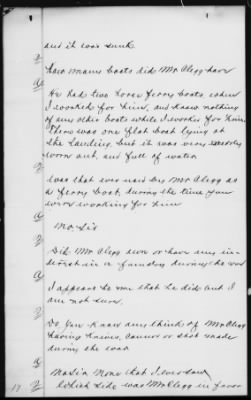 and it was sunk
Q How many boats did Mr. Clegg have
A He had two horse ferry boats, when
I worked for him, and know nothing
of any other boats while I worked for him.
There was one flat boat lying at
the Landing, but it was very
worn out, and full of water
Q Was that ever used by Mr Clegg as
a ferry boat, during the time you
were working for him
A No. Sir
Q Did Mr Clegg own or have any in-
terest in a foundry during the war
A I appears to me that he did but I
am not sure.
Q Do you know any think of Mr Clegg
having knives, cannon or shot made
during the war
A None that I ever saw
Q Which side was Mr Clegg in favor